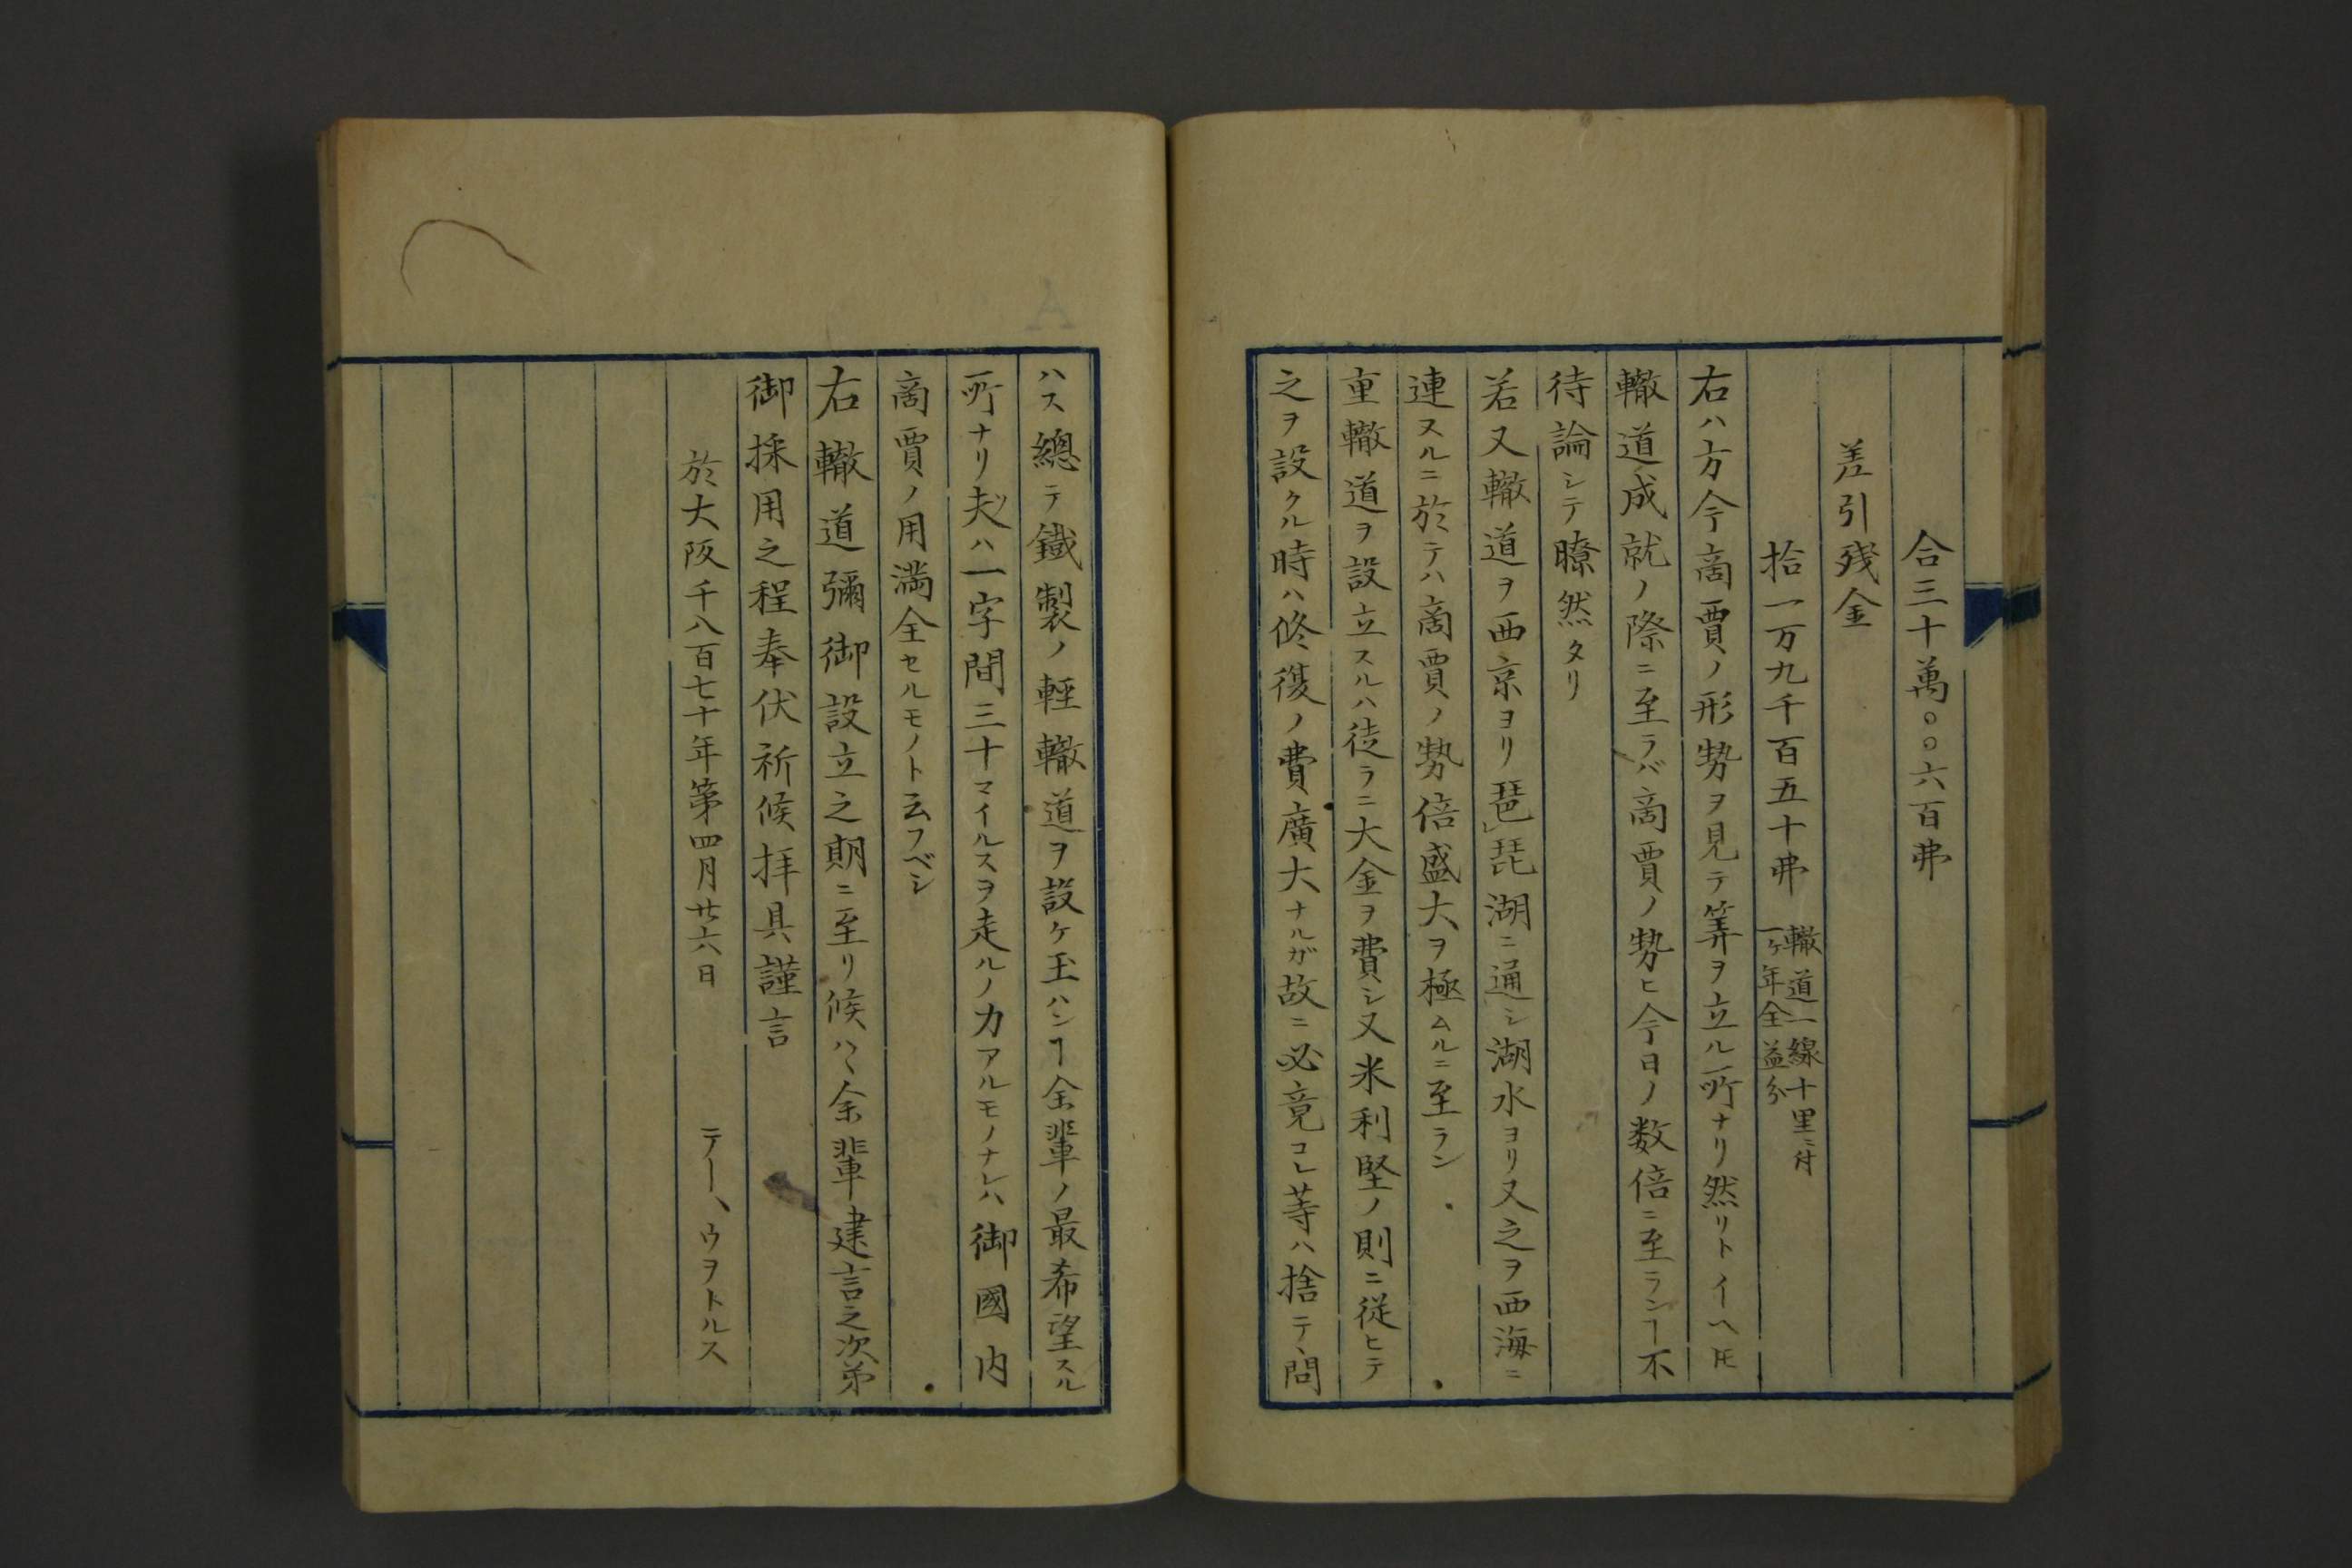 合三十萬〇〇六百弗
差引残金
拾一万九千百五十弗 轍道一線十里ニ付
一ケ年全益分
右ハ方今商賈ノ形勢ヲ見テ筭ヲ立ル所ナリ然リトイヘ𪜈
轍道成就ノ際ニ至ラバ商賈ノ勢ヒ今日ノ数倍ニ至ランヿ不
待論シテ瞭然タリ
若又轍道ヲ西京ヨリ琵琶湖ニ通シ湖水ヨリ又之ヲ西海ニ
連スルニ於テハ商賈ノ勢倍盛大ヲ極ムルニ至ラン
重轍道ヲ設立スルハ徒ラニ大金ヲ費シ又米利堅ノ則ニ従ヒテ
之ヲ設クル時ハ修復ノ費廣大ナルガ故ニ必竟コレ等ハ捨テ、問
ハス總テ鐵製ノ軽轍道ヲ設ケ玉ハンヿ余輩ノ最希望スル
所ナリ夫ハ一字間三十マイルスヲ走ルノ力アルモノナレハ御國内
商賈ノ用満全セルモノト云フベシ
右轍道彌御設立之期ニ至リ候ハヽ余輩建言之次第
御採用之程奉伏祈候拝具謹言
於大阪千八百七十年第四月廿六日
テー、ウヲトルス